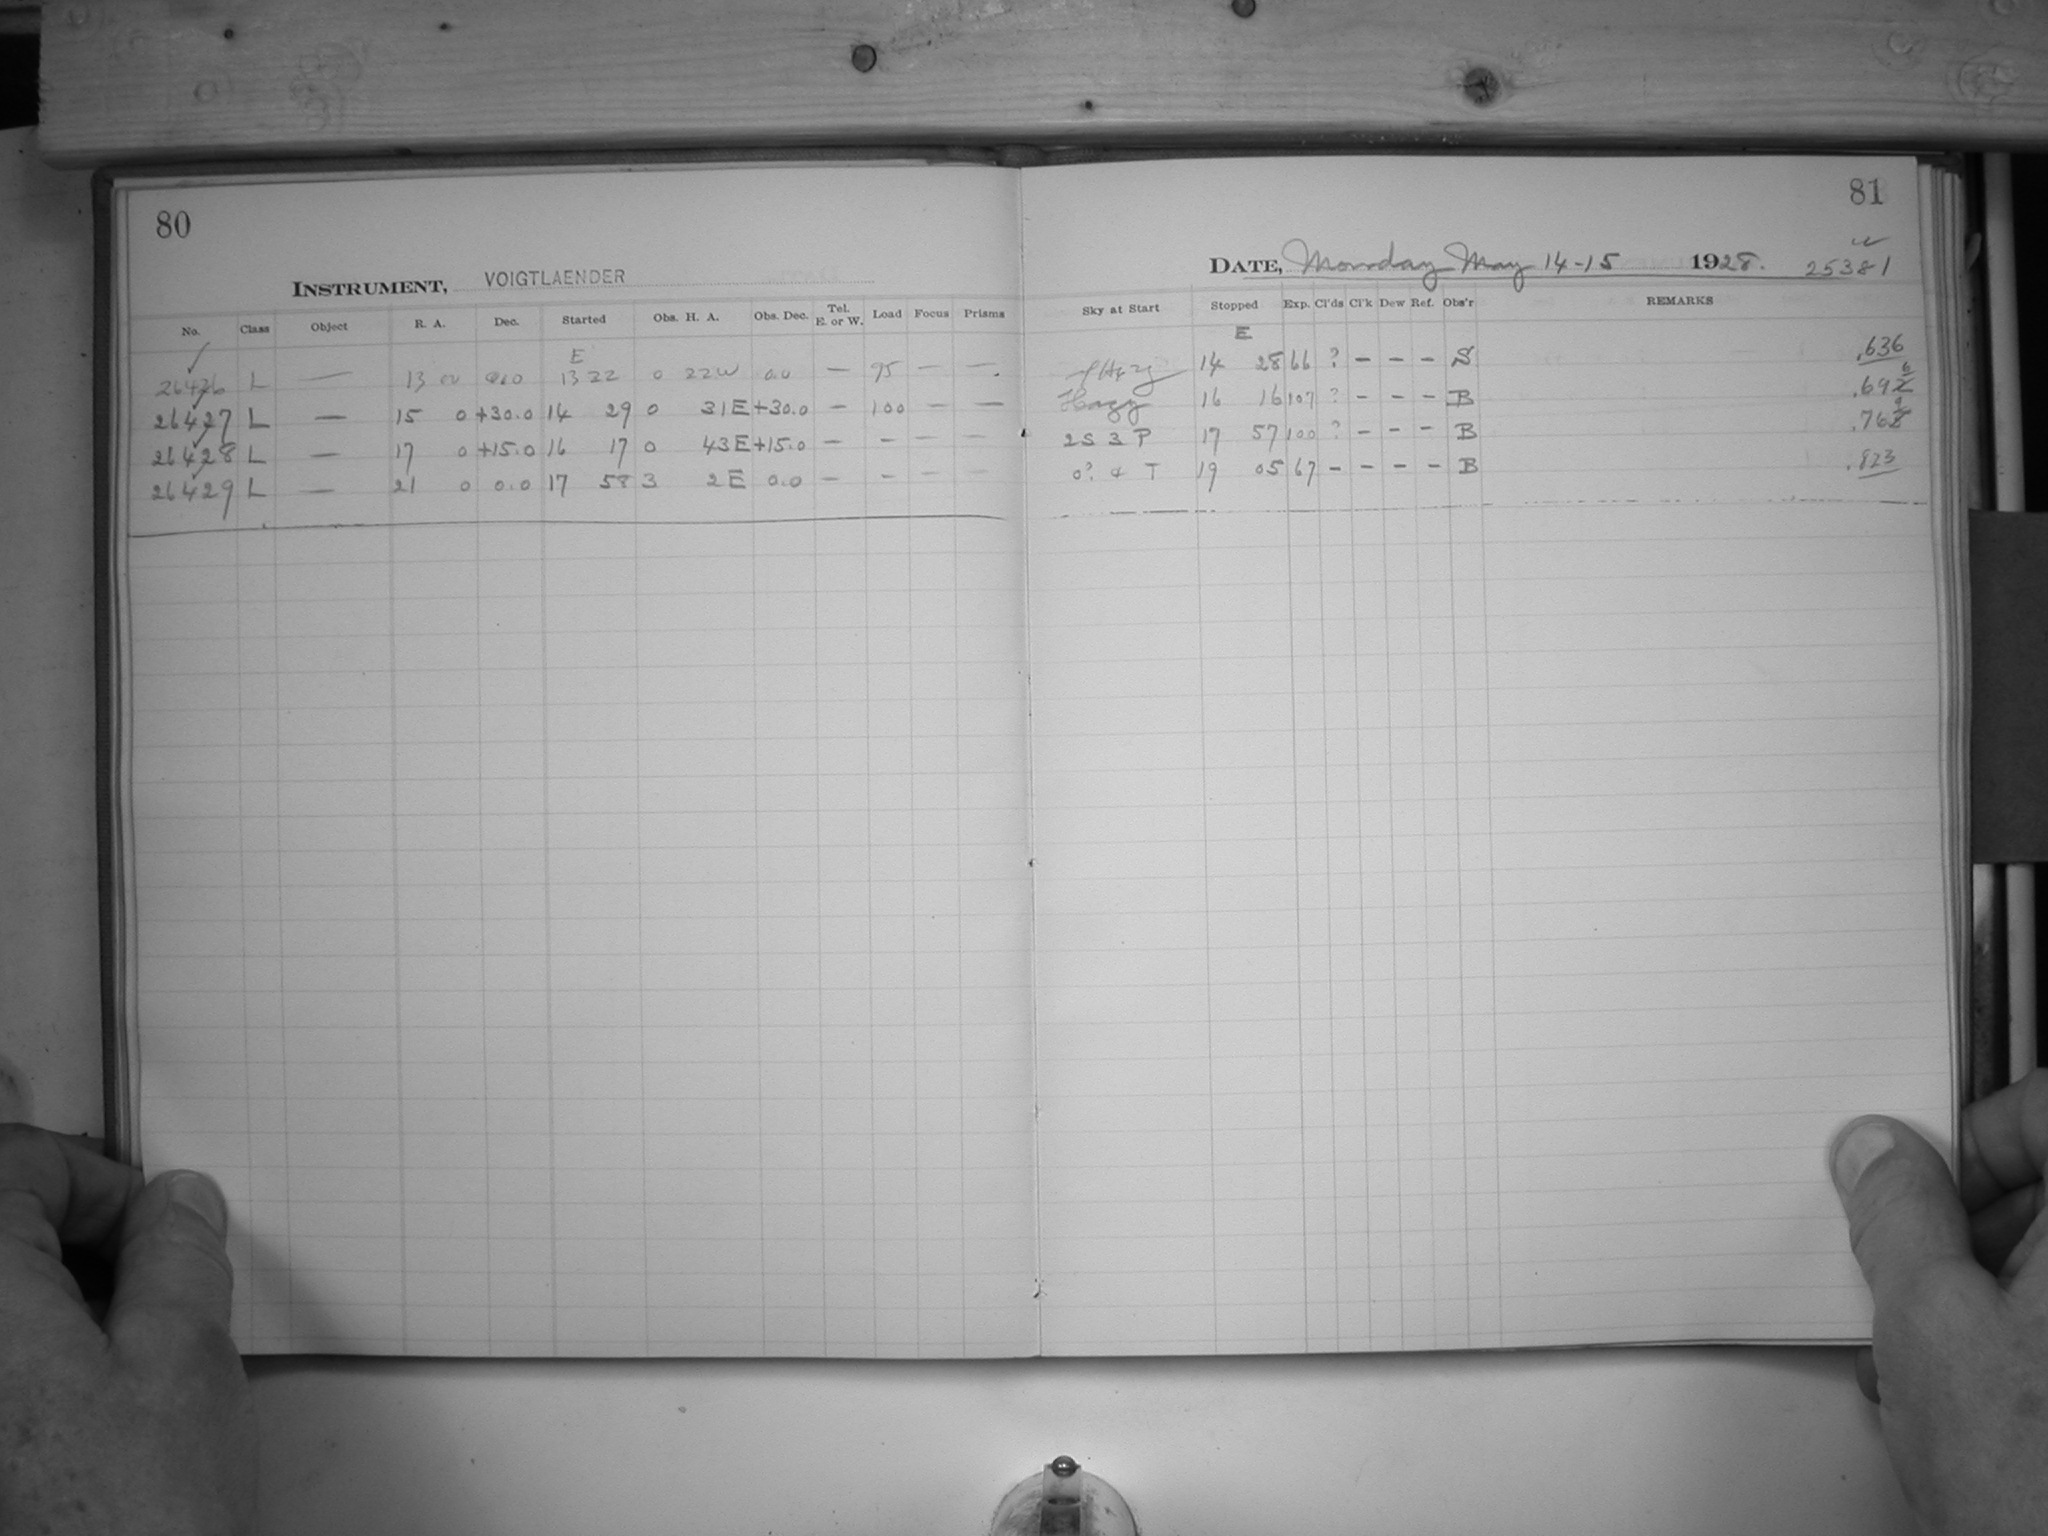 80
INSTRUMENT, VOIGTLAENDER
No. Class Object R. A. Dec. Started Obs. H. A. Obs. Dec. Tel. E. or W. Load Focus Prisms
E
26426 L — 13 00 0.0 13 22 0 22W 0.0 — 95 — —
26427 L — 15 0 +30.0 14 29 0 31E +30.0 — 100 — —
26428 L — 17 0 +15.0 16 17 0 43E +15.0 — — — —
26429 L — 21 0 0.0 17 58 3 2E 0.0 — — — —
81
DATE, Monday May 14-15 1928. 25381
Sky at Start Stopped Exp. Cl'ds Cl'k Dew Ref. Obs'r REMARKS
E
14 28 66 ? – – – S .636
Hazy 16 16 107 ? – – – B .696
2S 3 P 17 57 100 ? – – – B .769
0? & T 19 05 67 – – – – B .823